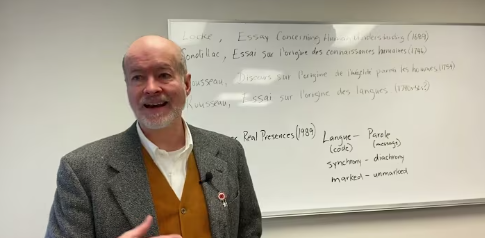 Locke, Essay Concerning Human Understanding (1689)
Condillac, Essai sur l'origine des connaissances humaines (1746)
Rousseau, Discours sur l'origine de l'inégalité parmi les hommes (1754)
Rousseau, Essai sur l'origine des langues
Real Presences (1989) Langue - Parole
(code) (message)
synchrony - diachrony
marked - unmarked